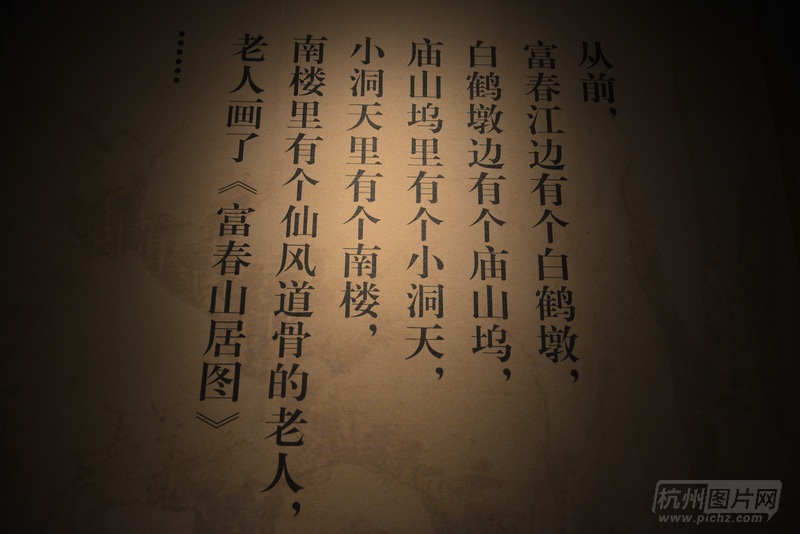 从前，
富春江边有个白鹤墩，
白鹤墩边有个庙山坞，
庙山坞里有个小洞天，
小洞天里有个南楼，
南楼里有个仙风道骨的老人，
老人画了《富春山居图》
……
杭州图片网
www.pichz.com